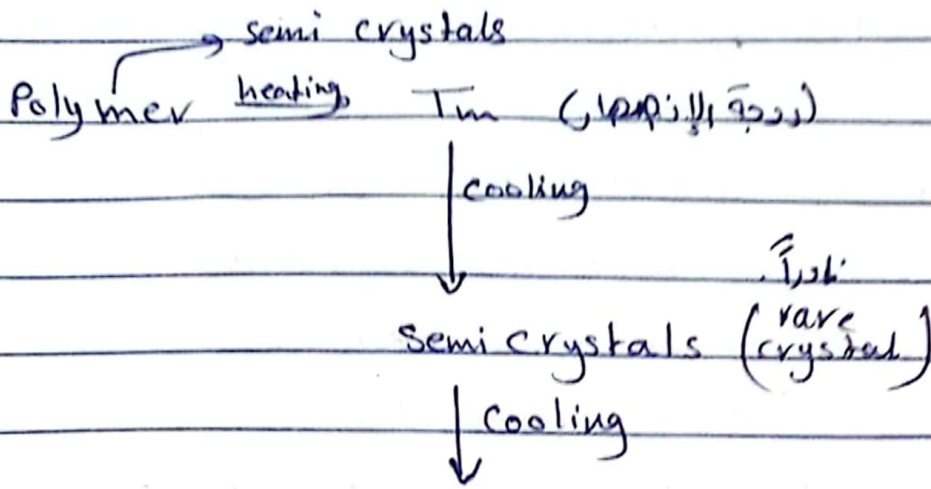 semi crystals
Polymer heating Tm (درجة الإنصهار)
cooling
نادراً
semi crystals (rare crystal)
cooling